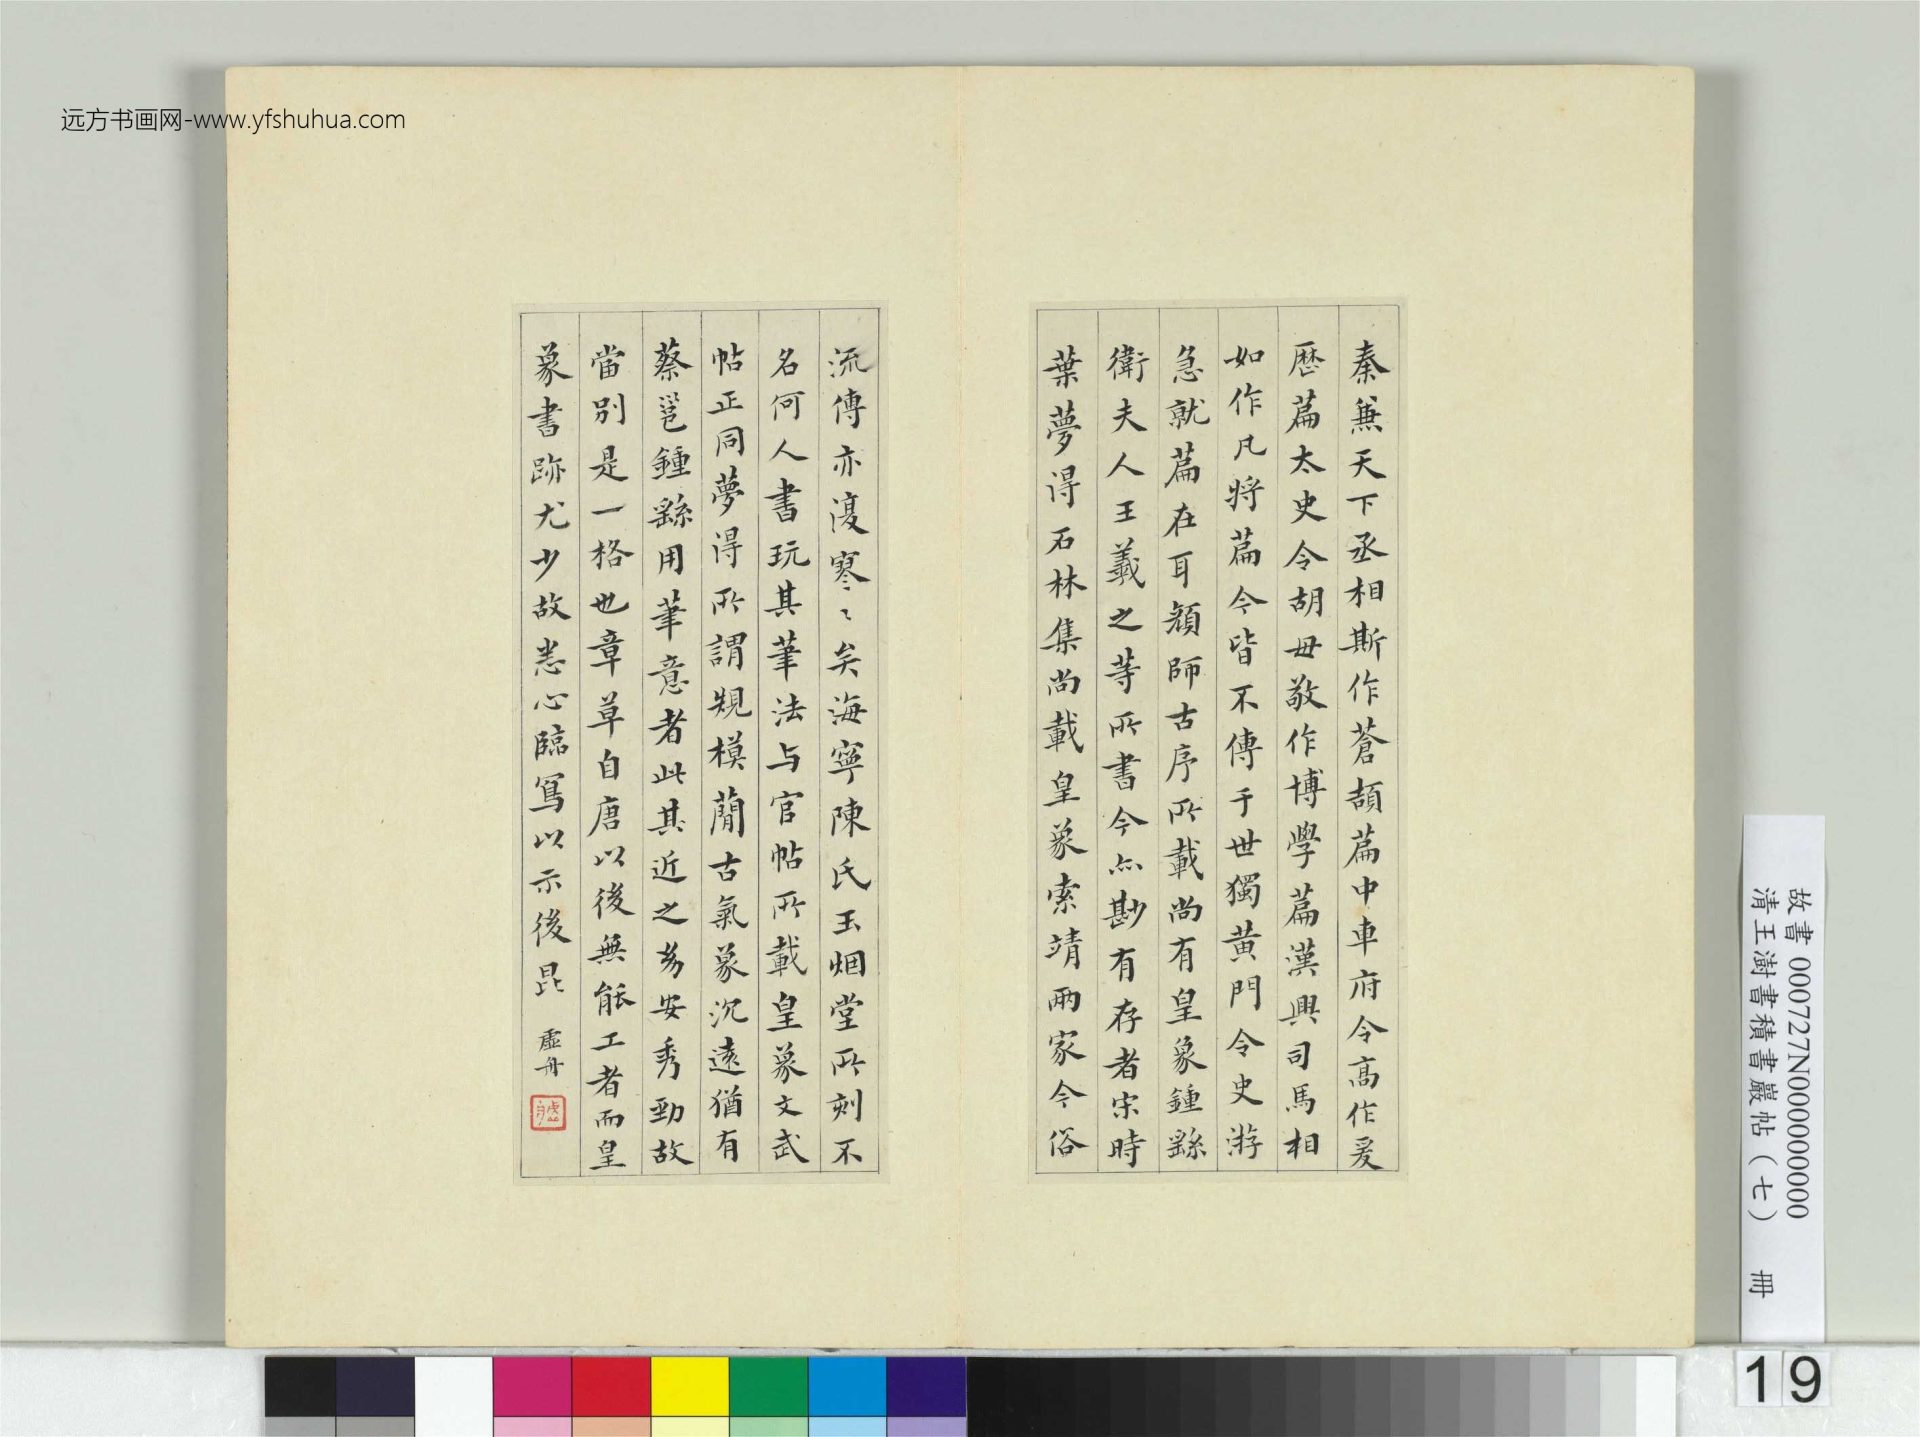 远方书画网-www.yfshuhua.com
秦兼天下丞相斯作蒼頡篇中車府令高作爰
歷篇太史令胡毋敬作博學篇漢興司馬相
如作凡將篇今皆不傳于世獨黄門令史游
急就篇在耳顔師古序所載尚有皇象鍾繇
衛夫人王羲之等所書今亦尠有存者宋時
葉夢得石林集尚載皇象索靖兩家今俗
流傳亦復寥〻矣海寧陳氏玉烟堂所刻不
名何人書玩其筆法与官帖所載皇象文武
帖正同夢得所謂規模蕳古氣象沉遠猶有
蔡邕鍾繇用筆意者此其近之幼安秀勁故
當别是一格也章草自唐以後無能工者而皇
象書跡尤少故悉心臨寫以示後昆 虛舟
故書 000727N000000000
清王澍書積書巖帖（七） 冊
19